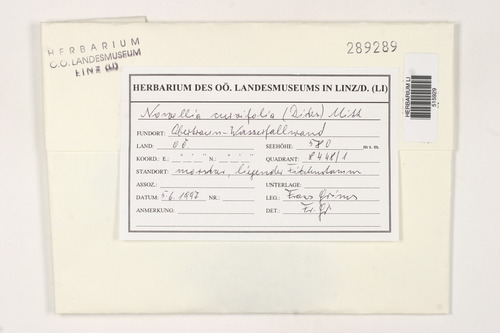 HERBARIUM
O.Ö. LANDESMUSEUM
LINZ (LI)
289289
HERBARIUM LI
515929
HERBARIUM DES OÖ. LANDESMUSEUMS IN LINZ/D. (LI)
Nowellia curvifolia (Dicks) Mitt
FUNDORT: Obertraun-Wasserfallwand
LAND: OÖ SEEHÖHE: 580 m s. m.
KOORD.: E: ° ' " N: ° ' " QUADRANT 8448/1
STANDORT: morscher, liegender Fichtenstamm
ASSOZ.: UNTERLAGE:
DATUM: 5.6.1997 NR.: LEG.: Franz Grims
ANMERKUNG: DET.: Fr. Gr.